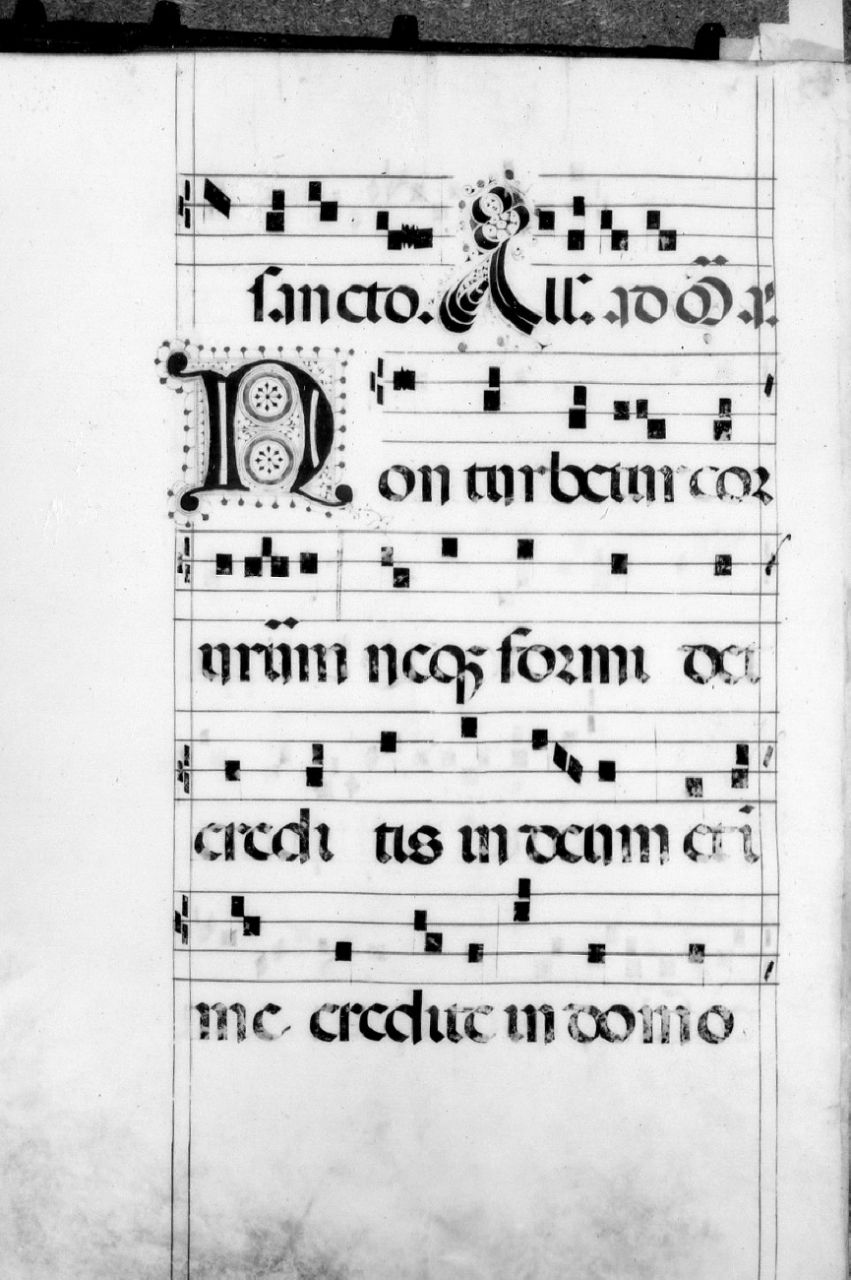 sancto. All'. ad Mā. a.
Non turbetur cor
uestrum neqꝫ formi det
credi tis in deum et i
me credite in domo